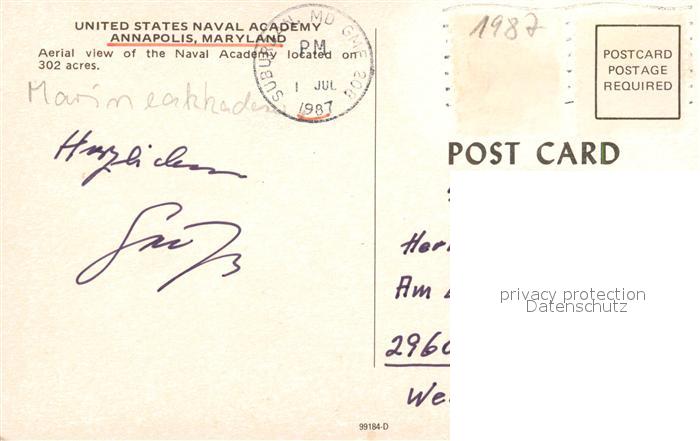 UNITED STATES NAVAL ACADEMY
ANNAPOLIS, MARYLAND
Aerial view of the Naval Academy located on
302 acres.
SUBURBAN, MD GMF 208
PM
1 JUL
1987
1987
POSTCARD
POSTAGE
REQUIRED
Herzlichen
POST CARD
Am
privacy protection
Datenschutz
2960
99184-D